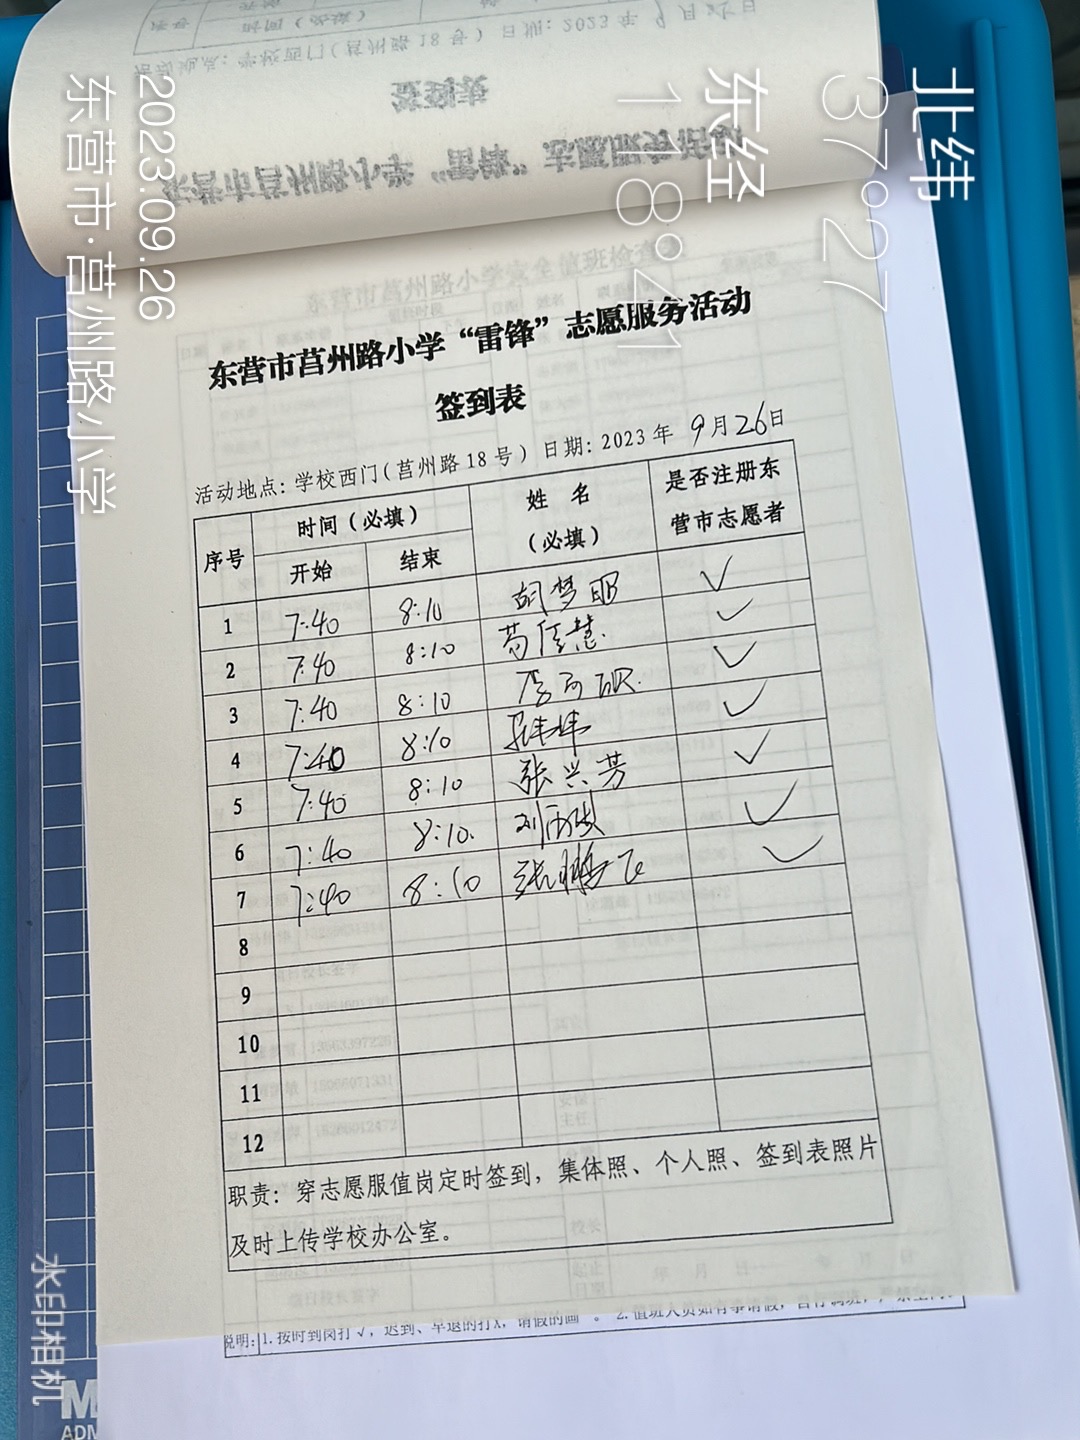 北纬
37°27
东经
118°41
2023.09.26
东营市·莒州路小学
东营市莒州路小学“雷锋”志愿服务活动
签到表
活动地点：学校西门（莒州路18号）日期：2023年 9月26日
序号 时间（必填） 姓 名（必填） 是否注册东营市志愿者
开始 结束
1 7:40 8:10 胡梦 ✓
2 7:40 8:10 葛佳慧 ✓
3 7:40 8:10 ✓
4 7:40 8:10 ✓
5 7:40 8:10 张兴芳 ✓
6 7:40 8:10 刘 ✓
7 7:40 8:10 张鹏飞 ✓
8
9
10
11
12
职责：穿志愿服值岗定时签到，集体照、个人照、签到表照片
及时上传学校办公室。
说明：1.按时到岗打√，迟到、早退的打X，请假的画 。2.值班人员如有事请假，自行调班，
水印相机